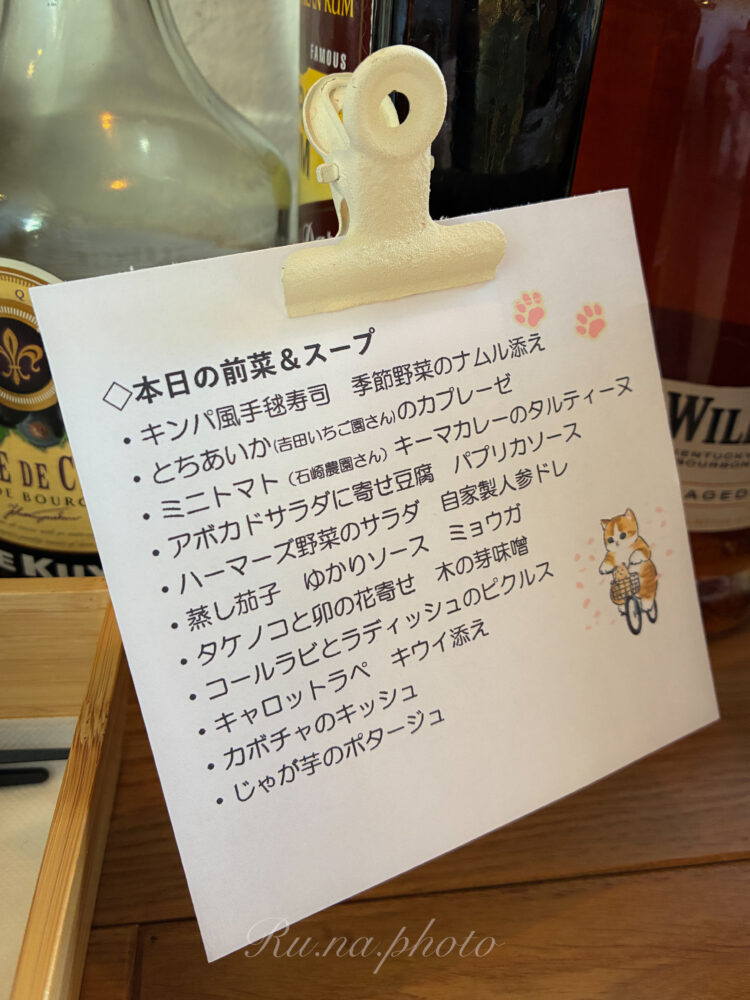 AN RUM
FAMOUS
◇本日の前菜＆スープ
・キンパ風手毬寿司　季節野菜のナムル添え
・とちあいか(吉田いちご園さん)のカプレーゼ
・ミニトマト（石崎農園さん）キーマカレーのタルティーヌ
・アボカドサラダに寄せ豆腐　パプリカソース
・ハーマーズ野菜のサラダ　自家製人参ドレ
・蒸し茄子　ゆかりソース　ミョウガ
・タケノコと卯の花寄せ　木の芽味噌
・コールラビとラディッシュのピクルス
・キャロットラペ　キウイ添え
・カボチャのキッシュ
・じゃが芋のポタージュ
E DE C
DE BOURG
E KUY
WIL
KENTUCKY
BOURBON
AGED
Ru.na.photo